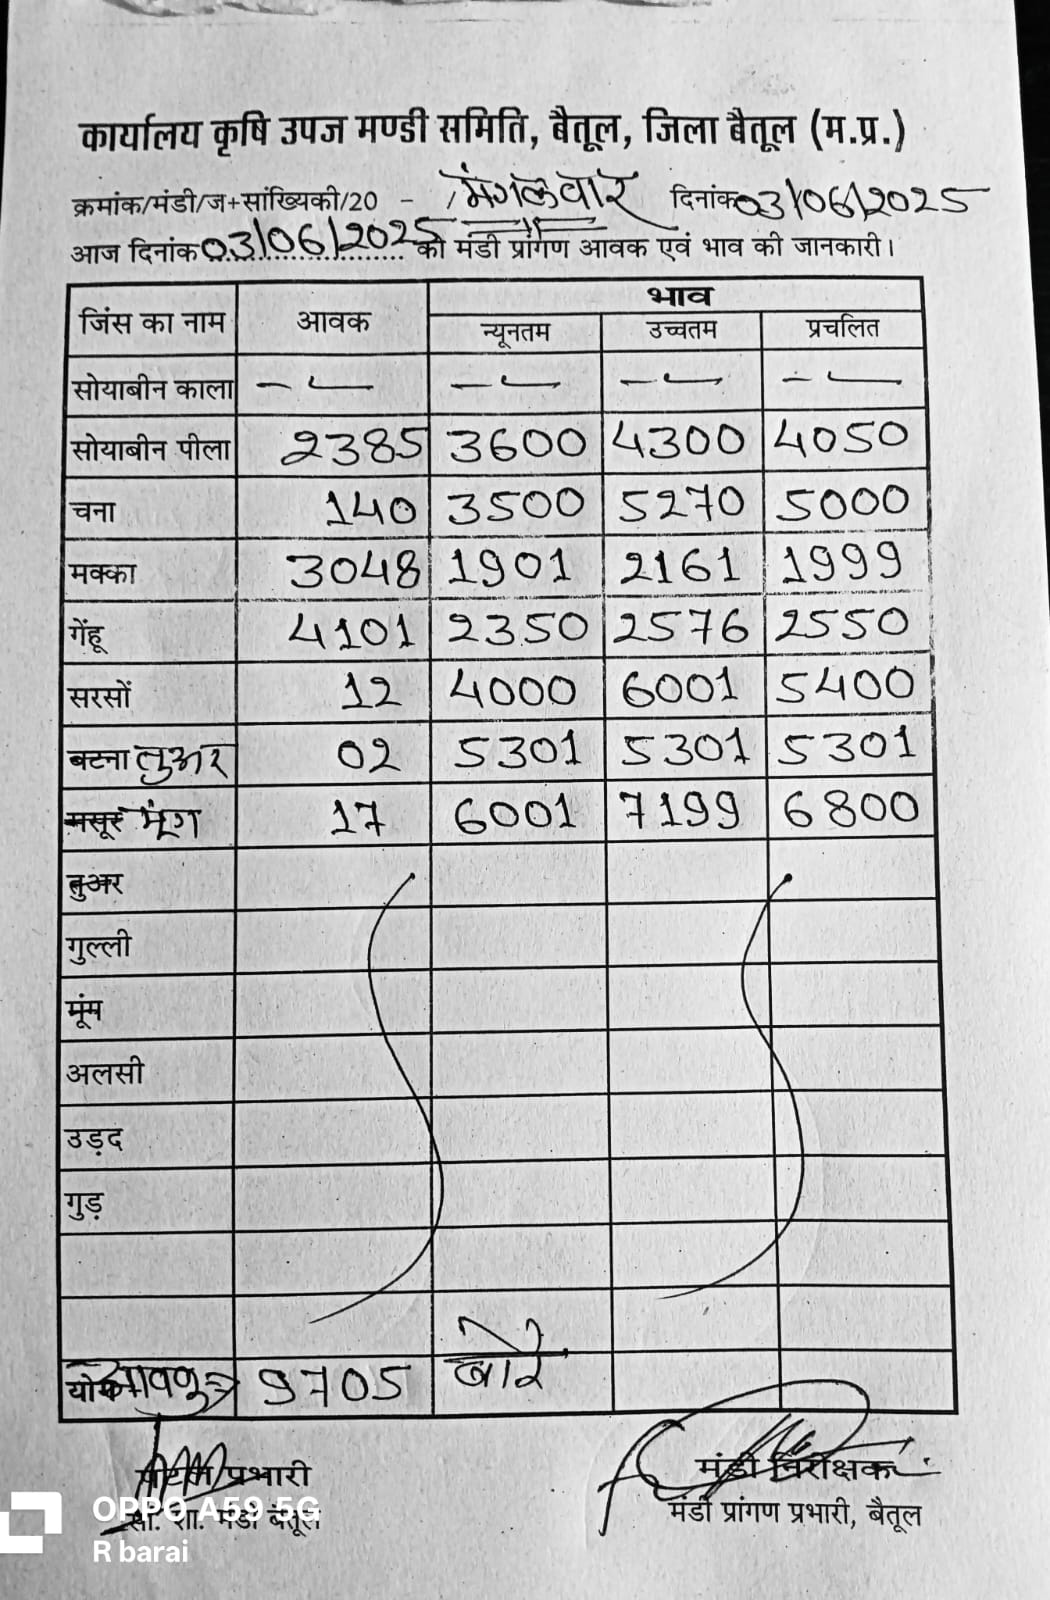 कार्यालय कृषि उपज मण्डी समिति, बैतूल, जिला बैतूल (म.प्र.)
क्रमांक/मंडी/ज+सांख्यिकी/20 - मंगलवार दिनांक 03/06/2025
आज दिनांक 03/06/2025 को मंडी प्रांगण आवक एवं भाव की जानकारी।
जिंस का नाम आवक भाव
न्यूनतम उच्चतम प्रचलित
सोयाबीन काला - - - - - - - -
सोयाबीन पीला 2385 3600 4300 4050
चना 140 3500 5270 5000
मक्का 3048 1901 2161 1999
गेंहू 4101 2350 2576 2550
सरसों 12 4000 6001 5400
बटना तुअर 02 5301 5301 5301
मसूर मूंग 17 6001 7199 6800
तुअर
गुल्ली
मूंम
अलसी
उड़द
गुड़
आवक 9705 बोरे
प्रभारी मंडी निरीक्षक
सां. शा. मंडी बैतूल मंडी प्रांगण प्रभारी, बैतूल
OPPO A59 5G
R barai